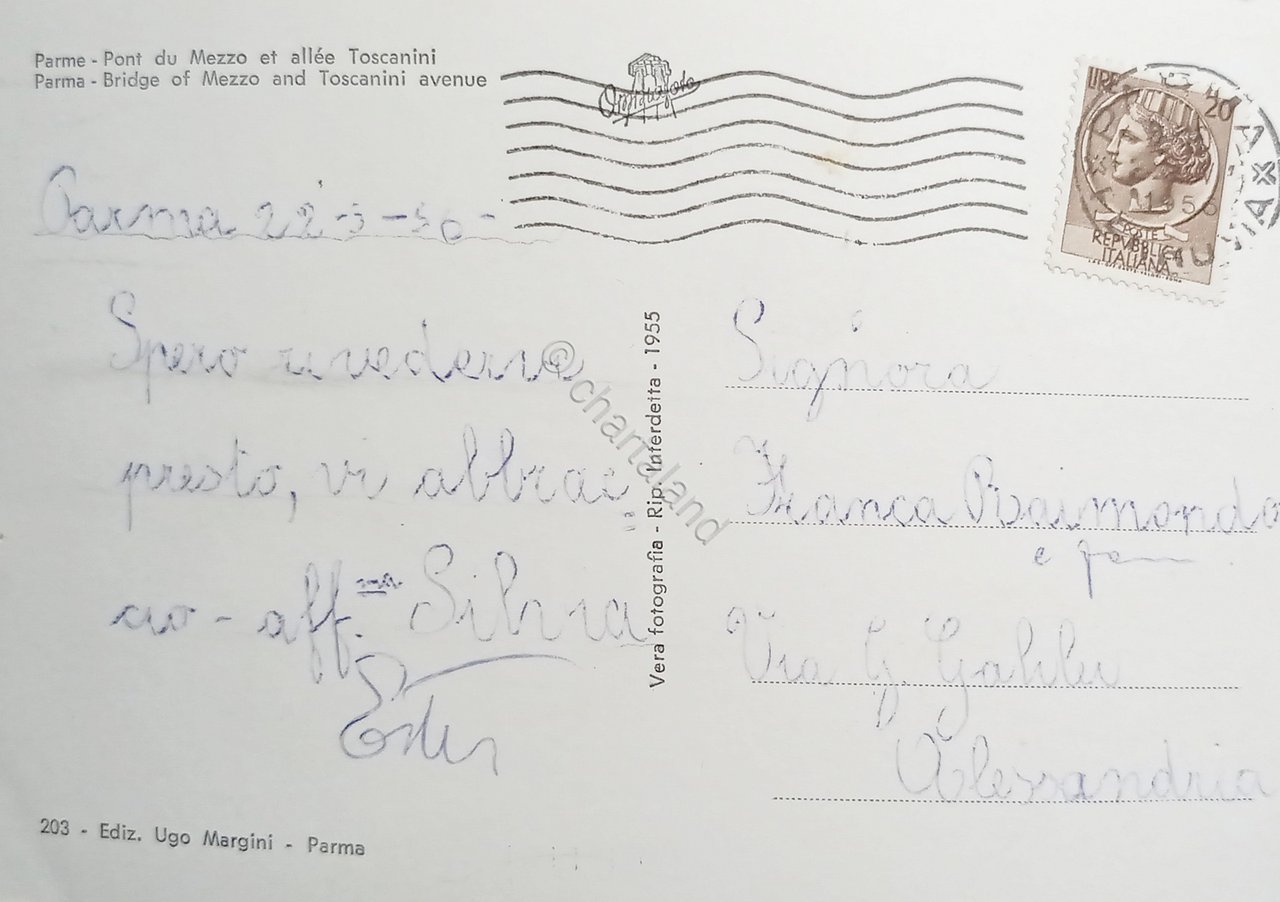 Parme - Pont du Mezzo et allée Toscanini
Parma - Bridge of Mezzo and Toscanini avenue
LIRE 20
POSTE
REPVBBLICA
ITALIANA
Parma 22-3-56-
Spero rivedervi
presto, vi abbrac
cio - aff.ma Silvia
Ester
Signora
Franca Raimondo
e fam
Via G. Galilei
Alessandria
Vera fotografia - Rip. Interdetta - 1955
© chartaland
203 - Ediz. Ugo Margini - Parma